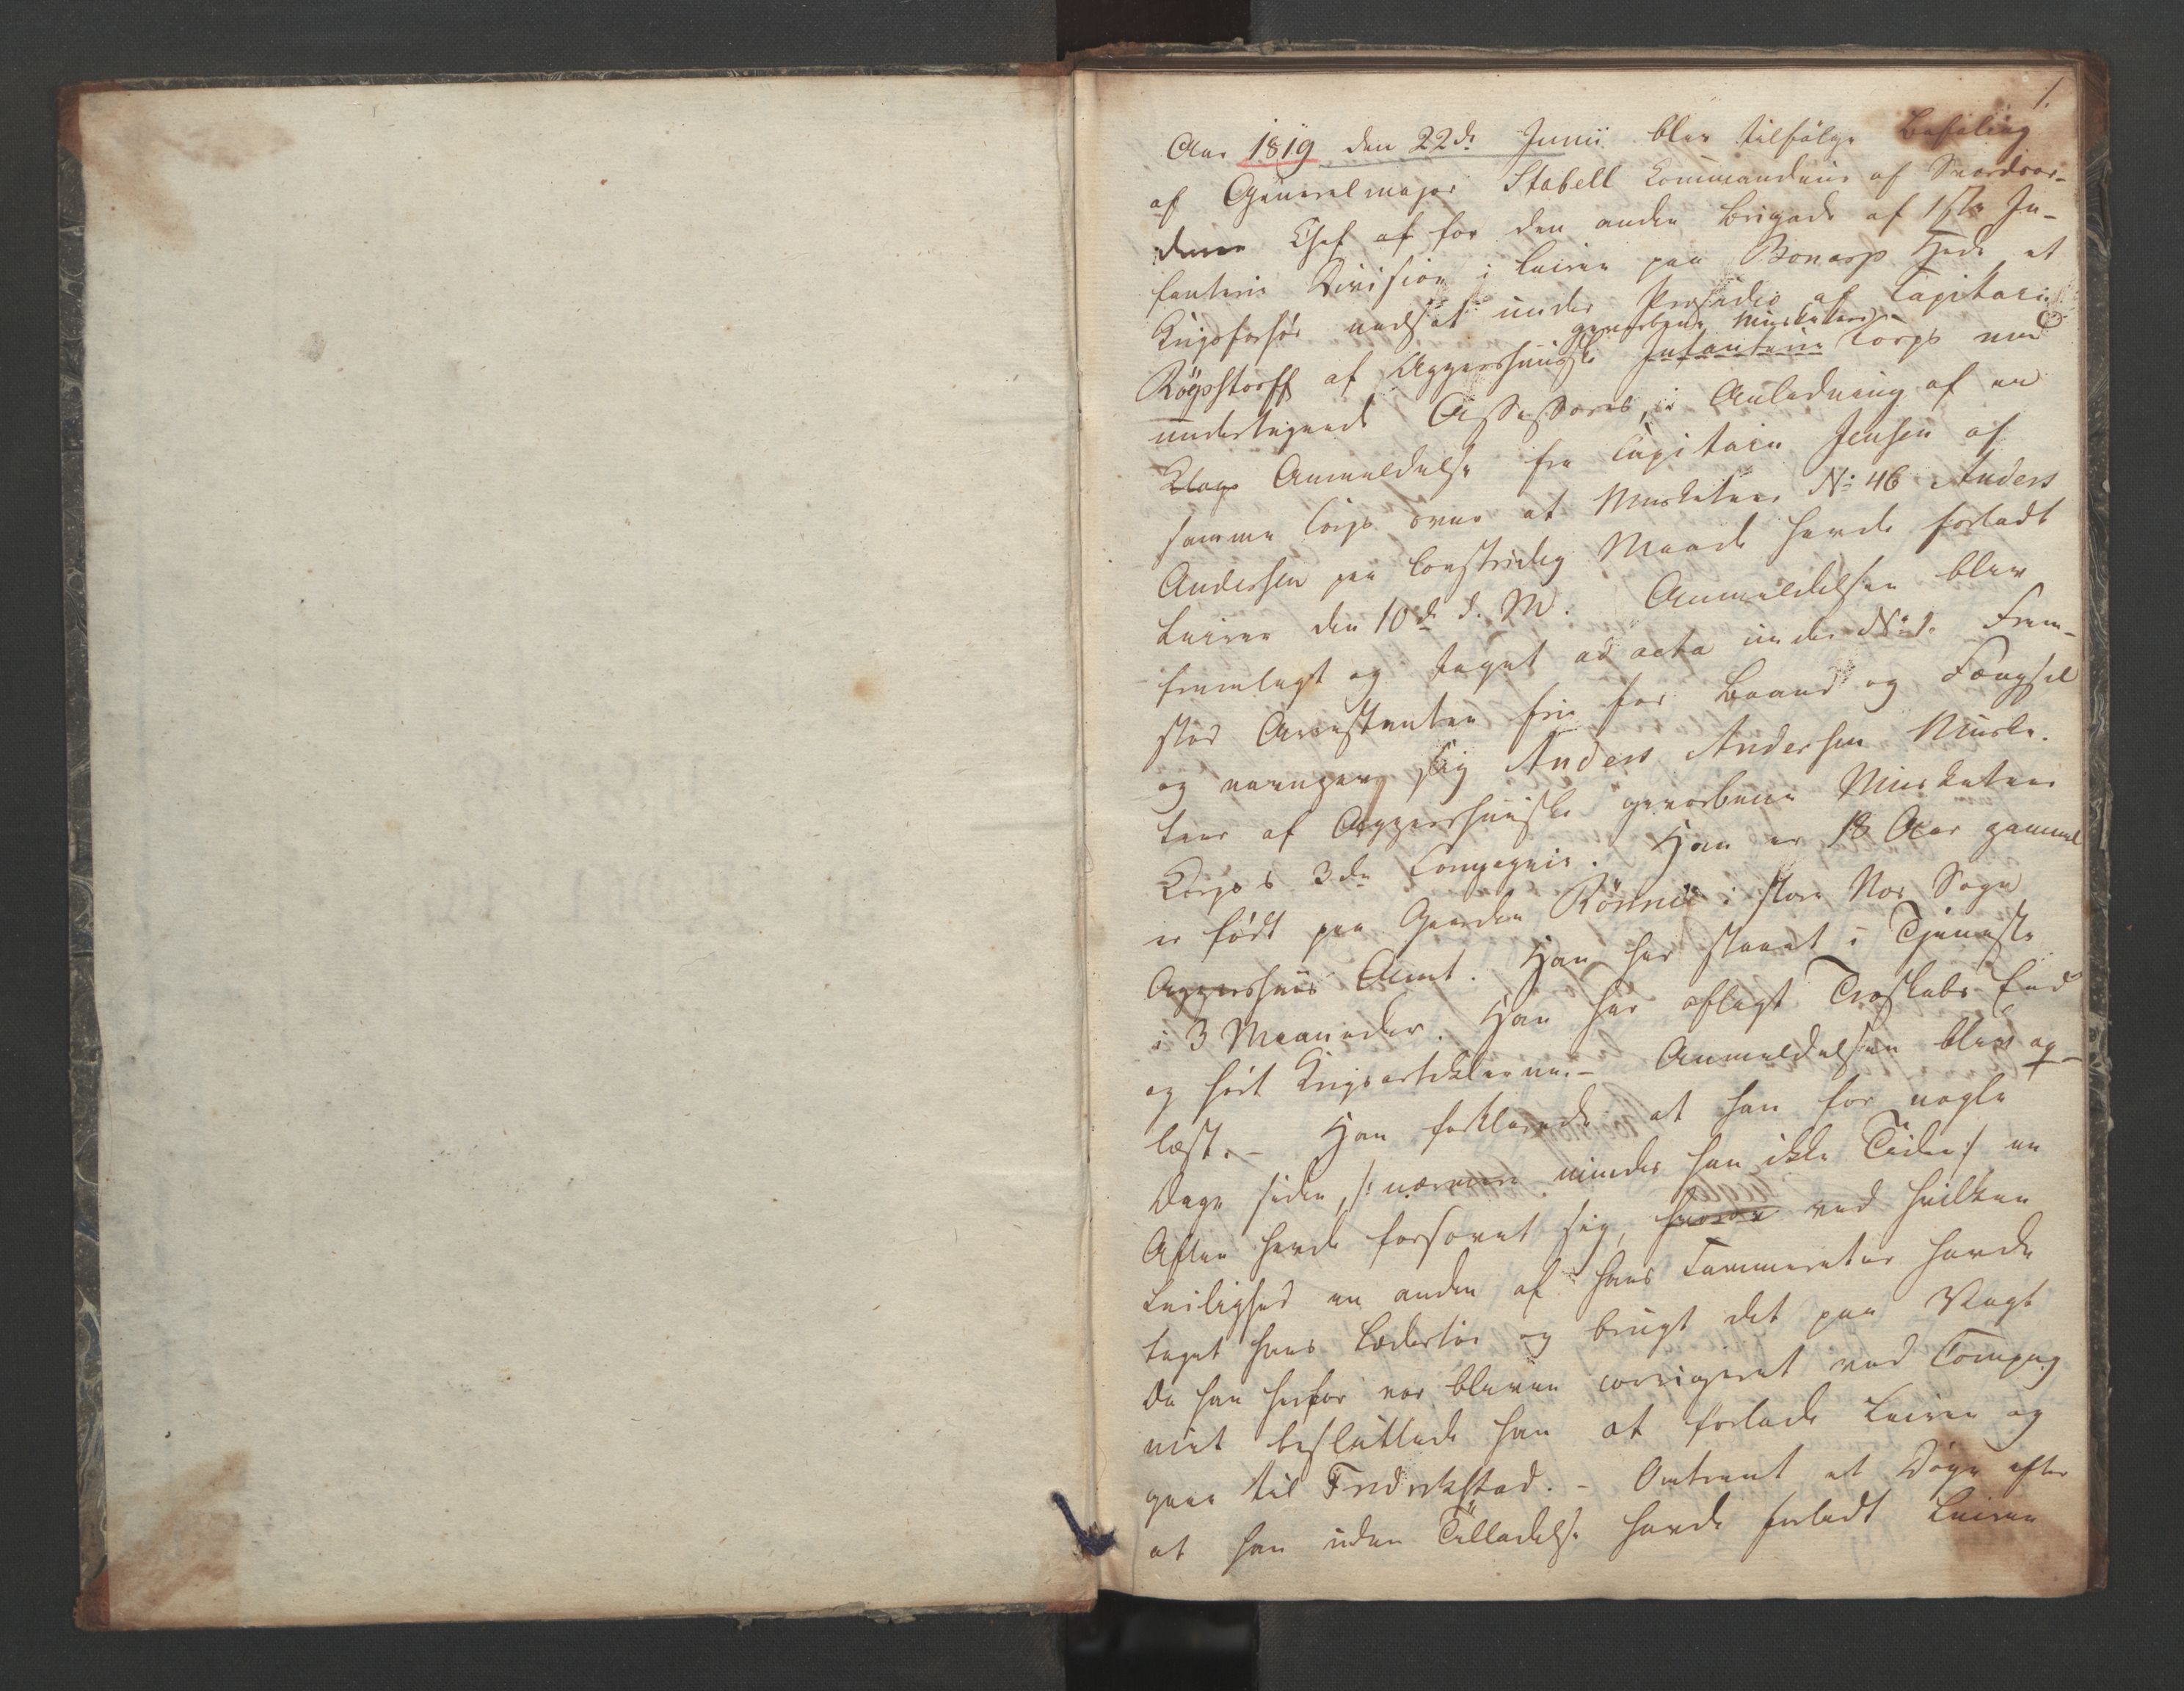 1.
Aar 1819 den 22de Junii blev tilfølge Befaling
af Generalmajor Stabell Kommandeur af Sverdor-
denen Chef af for den anden Brigade af 1ste In-
fanterie Division i Leiren paa Bonarp Hede et
Krigsforhør nedsat under Præsidio af Capitain
gevorbene Musketeer
Röepstorff af Aggershuusske Infanterie Corps med
undertegnede Assessores, i Anledning af en
Klage Anmeldelse fra Capitain Jensen af
samme Corps over at Musketeer No 46 Anders
Andersen paa lovstridig Maade havde forladt
Leiren den 10de d. M. Anmeldelsen blev
fremlagt og taget ad acta under No 1. Frem-
stod Arrestanten fri for Baand og Fængsel
og navngav sig Anders Andersen Muske-
teer af Aggershuusske gevorbene Musketeer
Corps 3de Compagnie. Han er 18 Aar gammel
er født paa Gaarden Rönnii i store Nos Sogn
Aggershuus Amt. Han har staaet i Tjeneste
i 3 Maaneder. Han har aflagt Troskabs Eed
og hört Krigsartiklerne.- Anmeldelsen blev op-
læst.- Han forklarede at han for nogle
Dage siden, /: nærmere minder han ikke Tiden :/ en
Aften havde forsovet sig, hvorov ved hvilken
Leilighed en anden af hans Kammerater havde
taget hans Lædertöi og brugt det paa Vagt
Da han herfor var bleven corrigeret ved Compag
niet besluttede han at forlade Leiren og
gaae til Fredrikstad.- Omtrent et Døgn efter
at han uden Tilladelse havde forladt Leiren